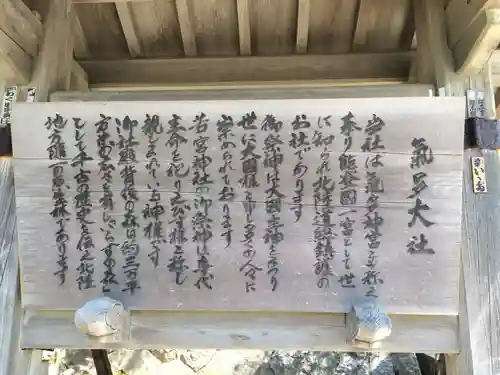 氣多大社
当社は氣多神宮と称え
奉り能登國一宮として世
に知られ北陸道鎮護の
お社であります
御祭神は大國主神であり
世に大國様として多くの人々に
崇められております
若宮神社の御祭神は事代
主命を祀りえびす様と称し
親しまれている神様です
御社殿背後の森は約三万平
方
として千古の歴史を伝え北陸
地方唯一の原生林であります